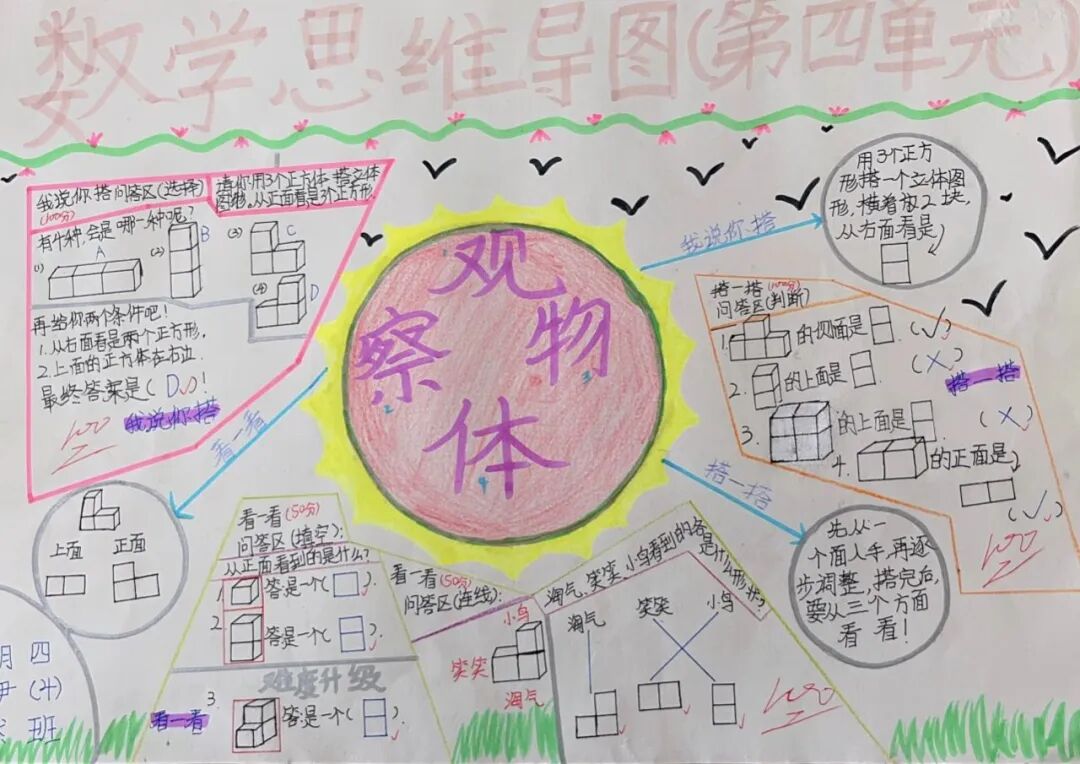 数学思维导图(第四单元)
观
察
物
体
1
2
3
4
我说你搭问答区(选择)
(100分)
请你用3个正方体搭立体
图物。从正面看是3个正方形。
有4种,会是哪一种呢?
(1)
A
(2)
B
(3)
C
(4)
D
再给你两个条件吧!
1.从右面看是两个正方形,
2.上面的正方体在右边.
最终答案是( D√)!
我说你搭
100
我说你搭
用3个正方
形搭一个立体图
形,横着放2块,
从右面看是
搭一搭(100分)
问答区(判断)
1.
的侧面是
(√)
2.
的上面是
(×)
搭一搭
3.
的上面是
(×)
4.
的正面是
(√)
100
搭一搭
先从一
个面入手,再逐
步调整,搭完后,
要从三个方面
看看!
看一看
上面 正面
看一看(50分)
问答区(填空):
从正面看到的是什么?
1.
答是一个( ).
2.
答是一个( ).
难度升级
看一看
3.
答是一个( ).
看一看(50分)
问答区(连线):
小鸟
笑笑
淘气
淘气,笑笑,小鸟看到的各
是什么形状?
淘气 笑笑 小鸟
100
四
(4)
班